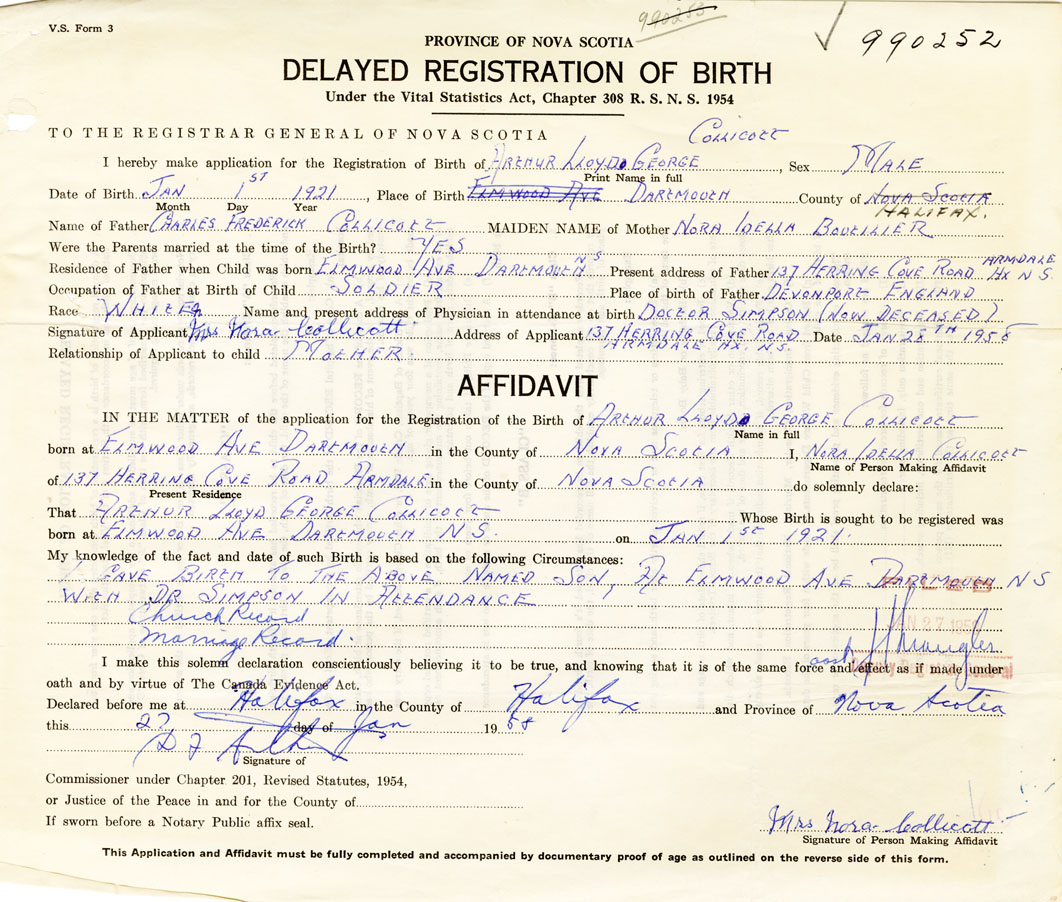 V.S. Form 3
990253
990252
PROVINCE OF NOVA SCOTIA
DELAYED REGISTRATION OF BIRTH
Under the Vital Statistics Act, Chapter 308 R. S. N. S. 1954
TO THE REGISTRAR GENERAL OF NOVA SCOTIA
COLLICOTT
I hereby make application for the Registration of Birth of ARTHUR LLOYD GEORGE, Sex MALE
Print Name in full
Date of Birth JAN 1ST 1921, Place of Birth ELMWOOD AVE DARTMOUTH County of NOVA SCOTIA
Month Day Year HALIFAX.
Name of Father CHARLES FREDERICK COLLICOTT MAIDEN NAME of Mother NORA IDELLA BOUTILIER
Were the Parents married at the time of the Birth? YES
Residence of Father when Child was born ELMWOOD AVE DARTMOUTH N S Present address of Father 137 HERRING COVE ROAD ARMDALE HX N S.
Occupation of Father at Birth of Child SOLDIER Place of birth of Father DEVONPORT ENGLAND
Race WHITE Name and present address of Physician in attendance at birth DOCTOR SIMPSON (NOW DECEASED).
Signature of Applicant Mrs Nora Collicott Address of Applicant 137 HERRING COVE ROAD Date JAN 28TH 1958
ARMDALE HX. N.S.
Relationship of Applicant to child MOTHER.
AFFIDAVIT
IN THE MATTER of the application for the Registration of the Birth of ARTHUR LLOYD GEORGE COLLICOTT
Name in full
born at ELMWOOD AVE DARTMOUTH in the County of NOVA SCOTIA I, NORA IDELLA COLLICOTT
Name of Person Making Affidavit
of 137 HERRING COVE ROAD ARMDALE in the County of NOVA SCOTIA do solemnly declare:
Present Residence
That ARTHUR LLOYD GEORGE COLLICOTT Whose Birth is sought to be registered was
born at ELMWOOD AVE DARTMOUTH N S. on JAN 1ST 1921.
My knowledge of the fact and date of such Birth is based on the following Circumstances:
I GAVE BIRTH TO THE ABOVE NAMED SON, AT ELMWOOD AVE DARTMOUTH N S
WITH DR SIMPSON IN ATTENDANCE
Church Record
Marriage Record.
JAN 27 195
I make this solemn declaration conscientiously believing it to be true, and knowing that it is of the same force and effect as if made under
oath and by virtue of The Canada Evidence Act.
Declared before me at Halifax in the County of Halifax and Province of Nova Scotia
this 27 day of Jan 1958
Signature of
Commissioner under Chapter 201, Revised Statutes, 1954,
or Justice of the Peace in and for the County of
If sworn before a Notary Public affix seal.
Mrs Nora Collicott
Signature of Person Making Affidavit
This Application and Affidavit must be fully completed and accompanied by documentary proof of age as outlined on the reverse side of this form.